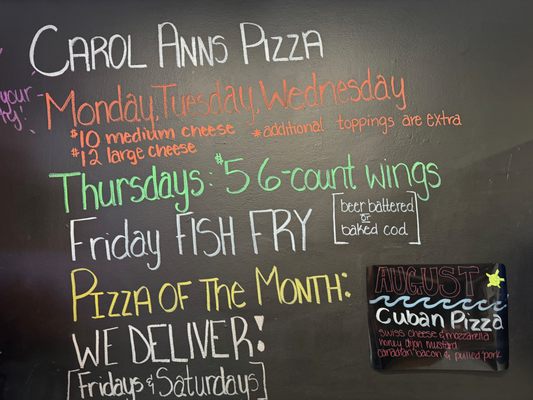 Carol Anns Pizza
your
ty!
Monday, Tuesday, Wednesday
$10 medium cheese *additional toppings are extra
$12 large cheese
Thursdays: $5 6-count wings
Friday FISH FRY
[beer battered
or
baked cod]
Pizza of the Month:
AUGUST
Cuban Pizza
swiss cheese & mozzarella
honey dijon mustard
canadian bacon & pulled pork
WE DELIVER!
[Fridays & Saturdays]